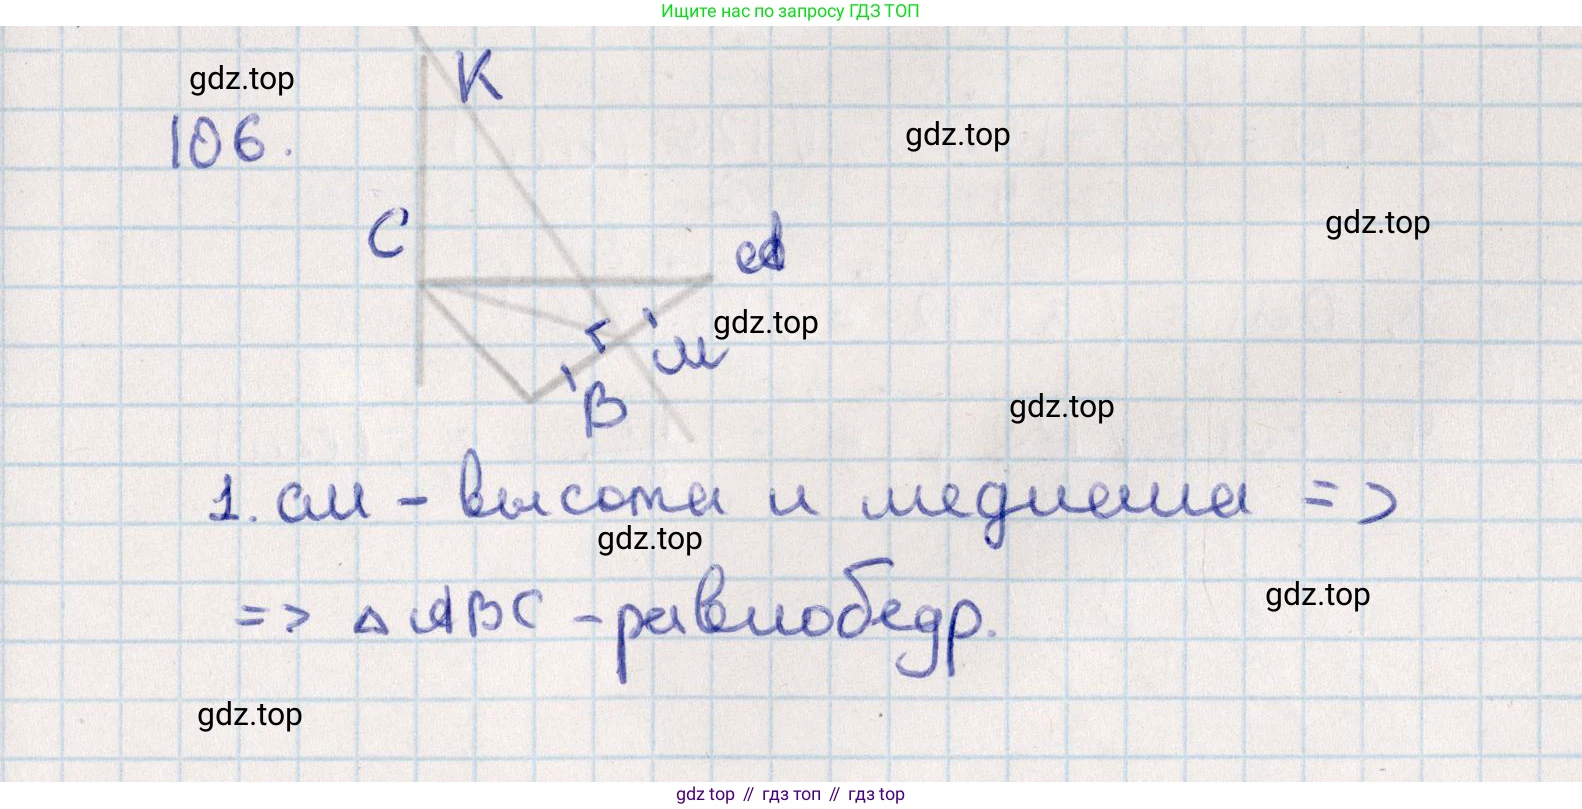 Ищите нас по запросу ГДЗ ТОП
K
gdz.top
106.
gdz.top
C
gdz.top
A
gdz.top
M
B
gdz.top
1. СМ - высота и медиана =>
gdz.top
=> △ ABC - равнобедр.
gdz.top
gdz.top
gdz top // гдз топ // гдз top